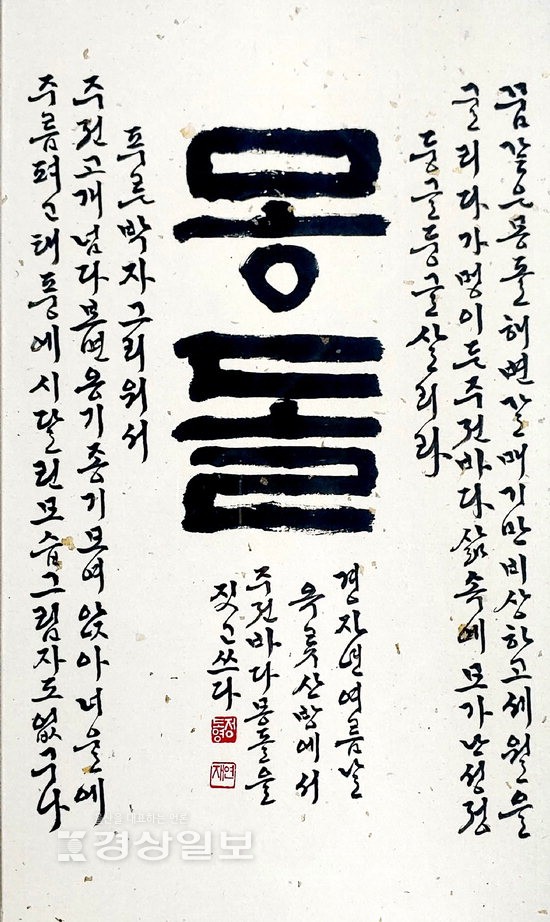 꿈같은몽돌해변갈매기만비상하고세월을
굴리다가멍이든주전바다삶속에모가난성정
둥글둥글살리라
몽돌
푸른박자그리워서
주전고개넘다보면옹기종기모여앉아너울에
주름펴고태풍에시달린모습그림자도없구나
경자년여름날
옥류산방에서
주전바다몽돌을
짓고쓰다
연재
경상일보